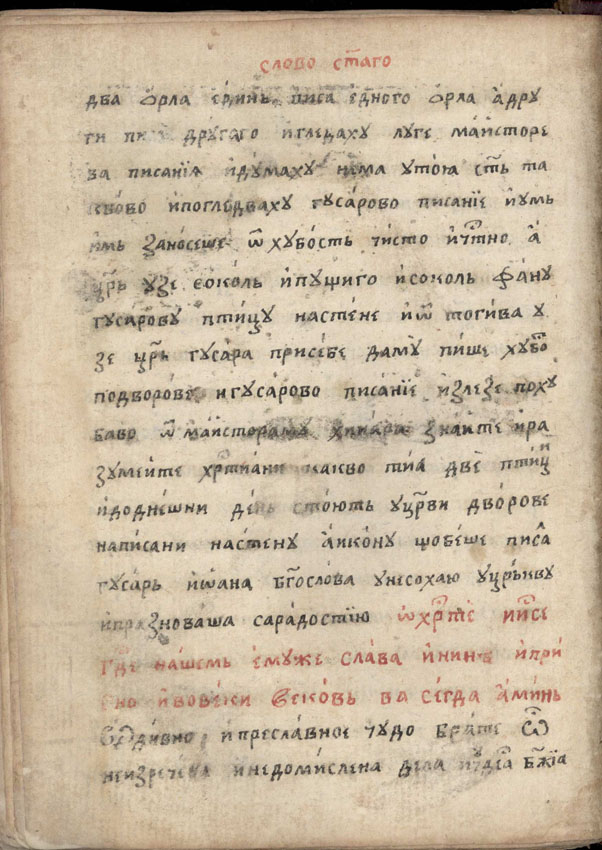 слово ст҃аго
два ѻрла єдинь писа єдного ѻрла а дру
ги пи другаго и гледаху луге маисторе
за писанїꙗ и думаху нема у тоꙗ ст҃ь та
ково и погледваху гусарово писанїе и умь
имь заносеше ѿ хубость чисто и чⷭ҇тно а
цр҃ь узе соколь и пущи го и соколь фану
гусарову птицу на стене и ѿ тогива у
зе цр҃ь гусара при себе да му пише хубⷡ҇о
по дворове и гусарово писанїе излезе по ху
баво ѿ маисторамь знаите и ра
зумеите хрⷭ҇тиани какво тиа две птици
и до днешни день стоють у цр҃ви дворове
написани на стену а икону що беше писаⷧ
гусарь иѡана бг҃ослова унесохаю у цр҃ькву
и празноваша са радостїю ѡ хрⷭ҇те ии҃се
где нашемь емуже слава и нинѣ и при
сно и во веки вековь ва сегда аминь
дивно и преславное чудо братѥ ѿ
неизречена и недомислена дела бж҃їа